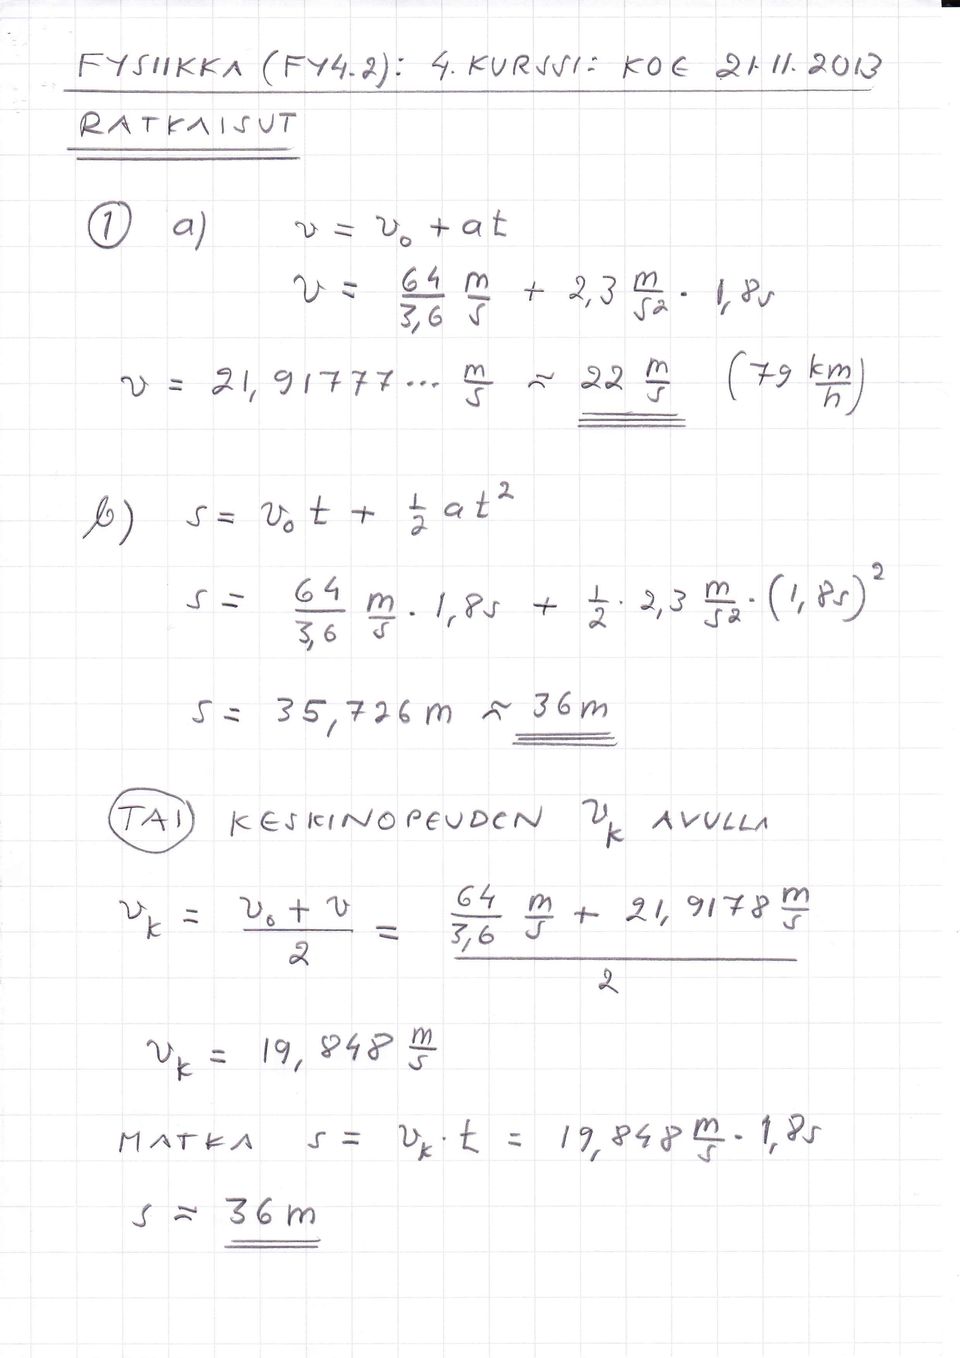 FYSIIKKA (FY4.2): 4. KURSSI: KOE 21.11.2013
RATKAISUT
① a) v = v₀ + at
v = 64/3,6 m/s + 2,3 m/s² · 1,8s
v = 21,91777... m/s ≈ 22 m/s (79 km/h)
b) s = v₀t + ½at²
s = 64/3,6 m/s · 1,8s + ½ · 2,3 m/s² · (1,8s)²
s = 35,726m ≈ 36m
TAI KESKINOPEUDEN vₖ AVULLA
vₖ = (v₀ + v)/2 = (64/3,6 m/s + 21,9178 m/s)/2
vₖ = 19,848 m/s
MATKA s = vₖ · t = 19,848 m/s · 1,8s
s ≈ 36m